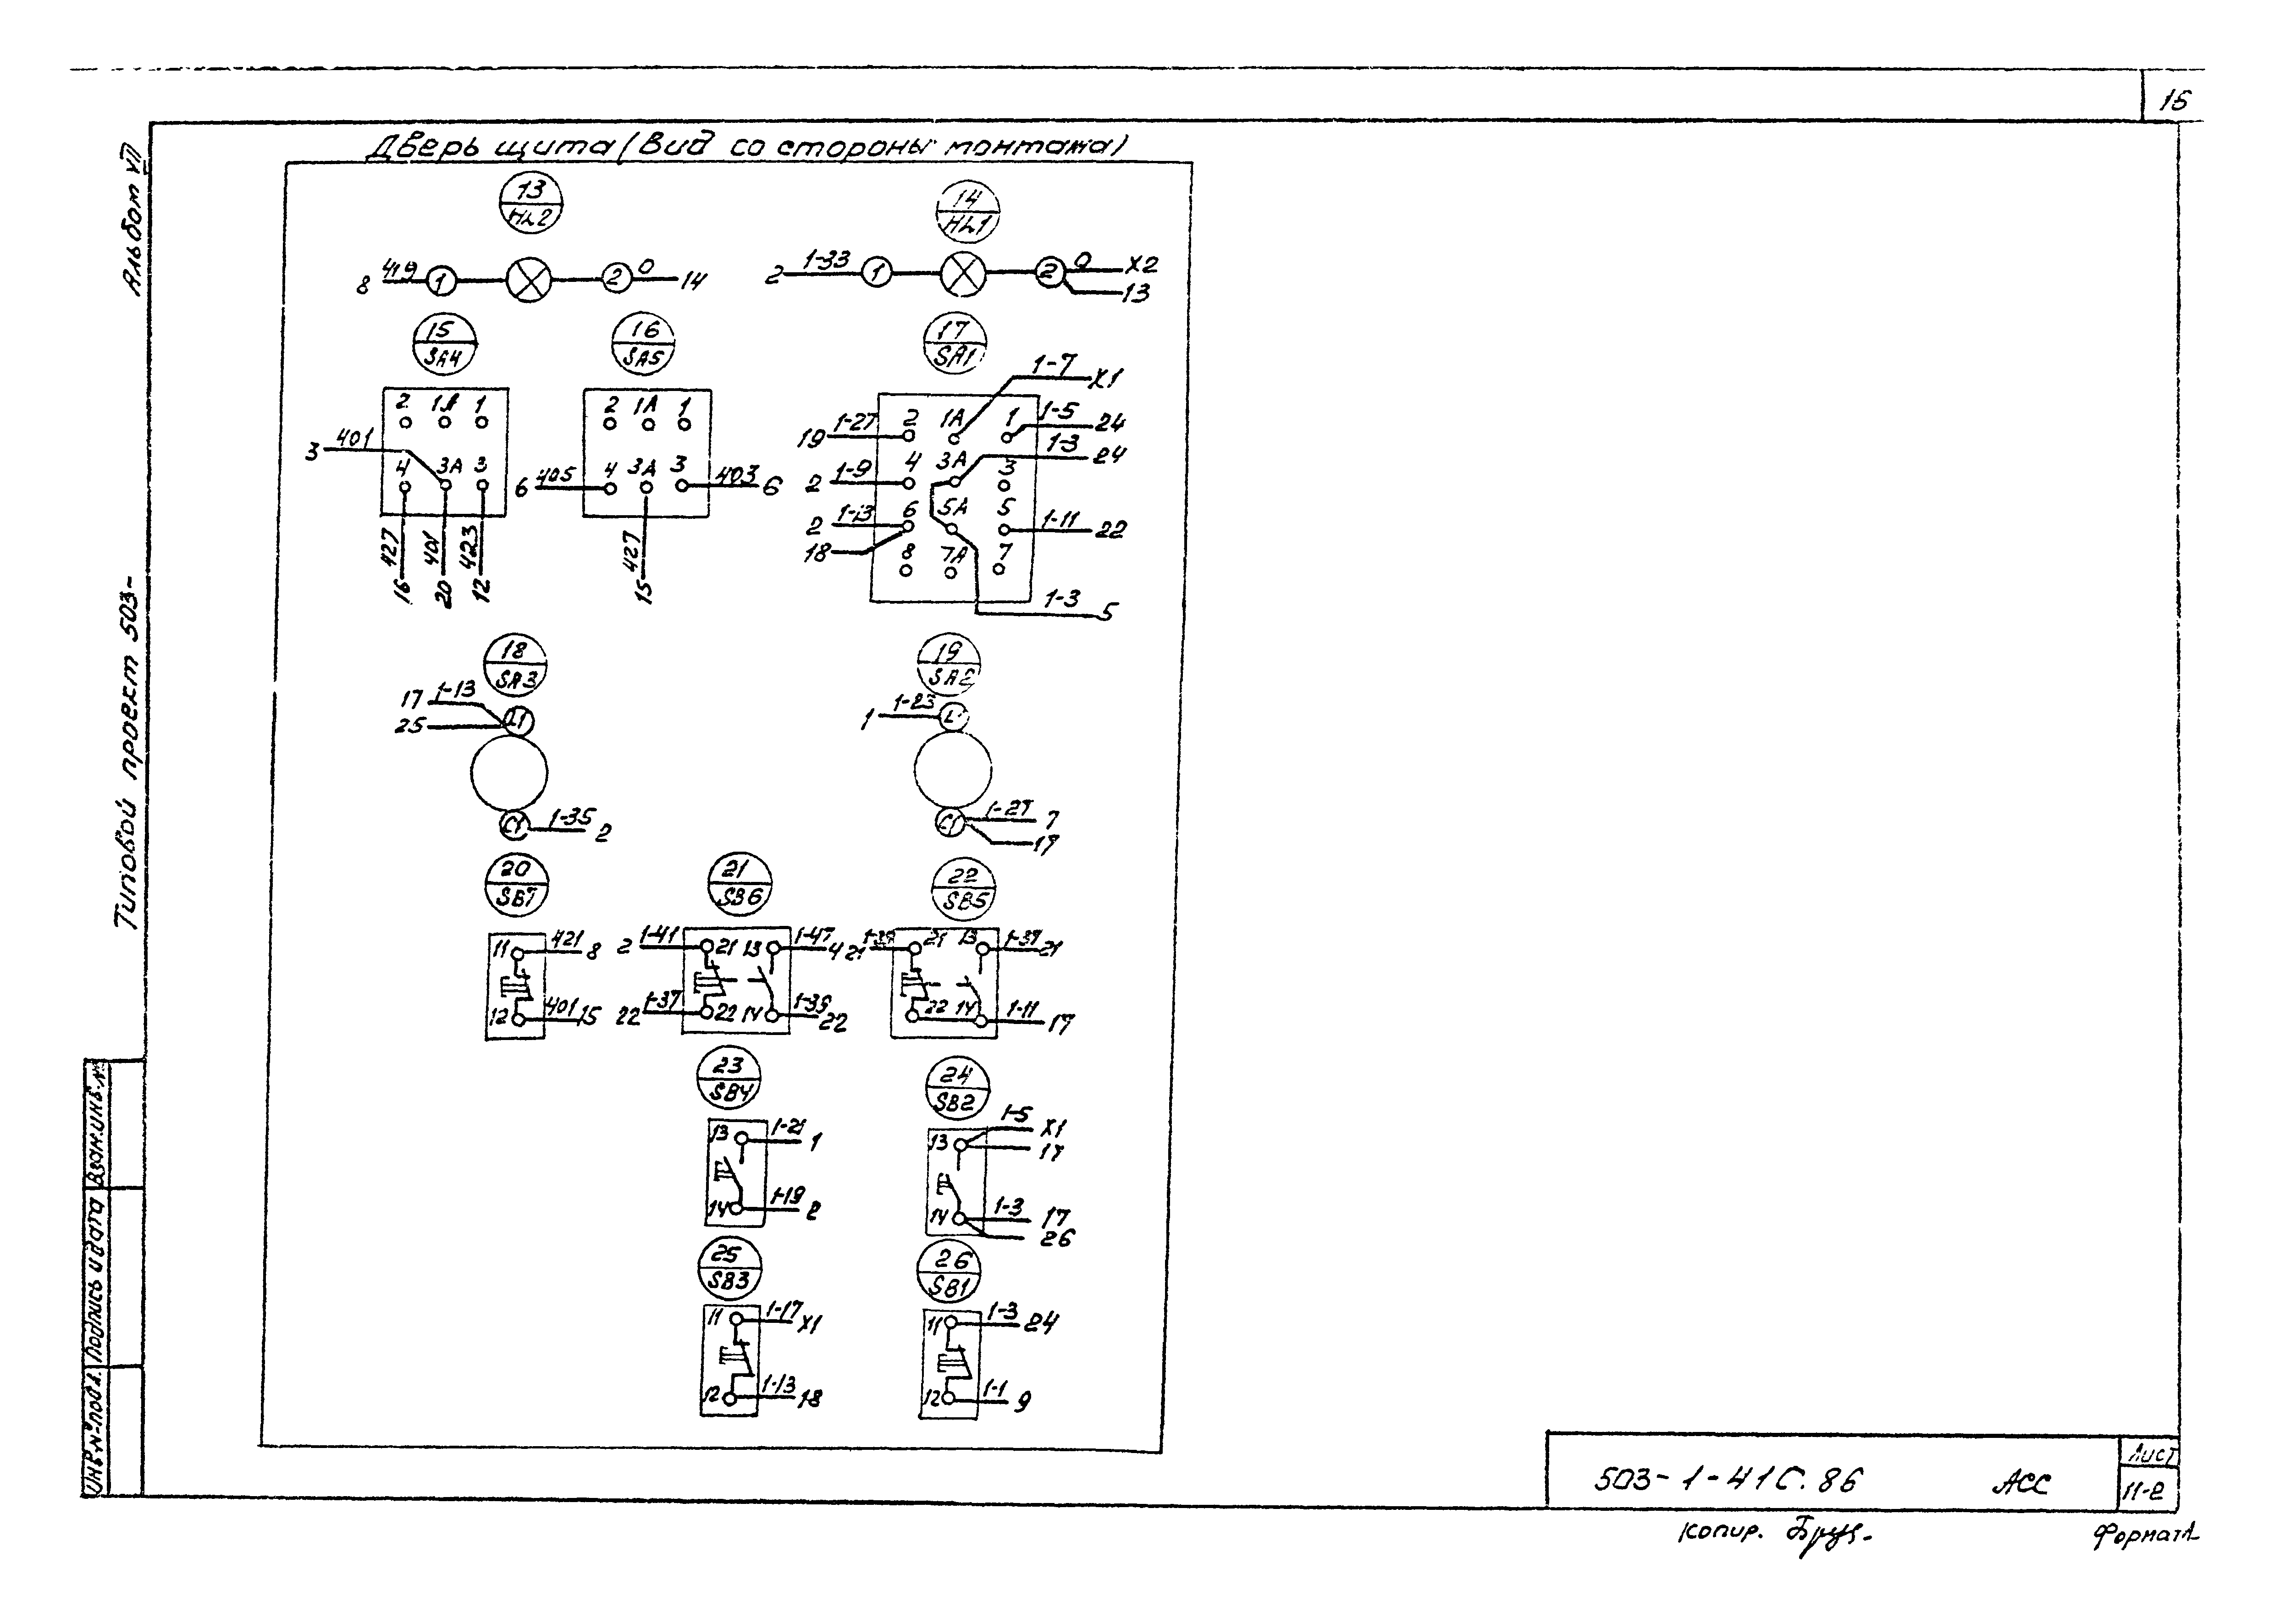 16
Альбом VII
Типовой проект 503-
Дверь щита (Вид со стороны монтажа)
13
HL2
14
HL1
8 419 1 2 0 14
2 1-33 1 2 0 X2
13
15
SA4
16
SA5
17
SA1
1-7 X1
2 1A 1
2 1A 1
19 1-27 2 1A 1 1-5 24
3 401
4 3A 3
6 405 4 3A 3 403 6
2 1-9 4 3A 3 1-3 24
2 1-13 6 5A 5 1-11 22
18 8 7A 7
427 401 423
16 20 12
427
15
1-3 5
18
SA3
19
SA2
17 1-13
25
1 1-23
C1 1-35 2
C1 1-27 7
17
20
SB7
21
SB6
22
SB5
11 421 8
2 1-41 21 13 1-47 4
21 1-39 21 13 1-37 21
12 401 15
22 1-37 22 14 1-39 22
22 14 1-11 17
23
SB4
24
SB2
13 1-21 1
13 1-5 X1
17
14 1-19 2
14 1-3 17
26
25
SB3
26
SB1
11 1-17 X1
11 1-3 24
12 1-13 18
12 1-1 9
Взам.инв.№
Подпись и дата
Инв.№ подл.
503-1-41С.86 АСС
Лист
11-2
Копир.
Формат